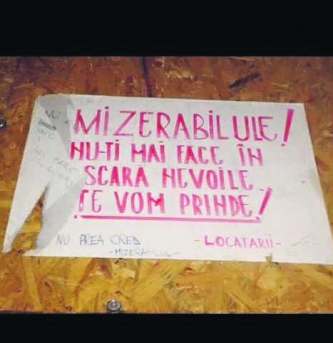 MIZERABILULE!
NU-TI MAI FACE ÎN
SCARA NEVOILE
TE VOM PRINDE!
- LOCATARII -
NU PREA CRED